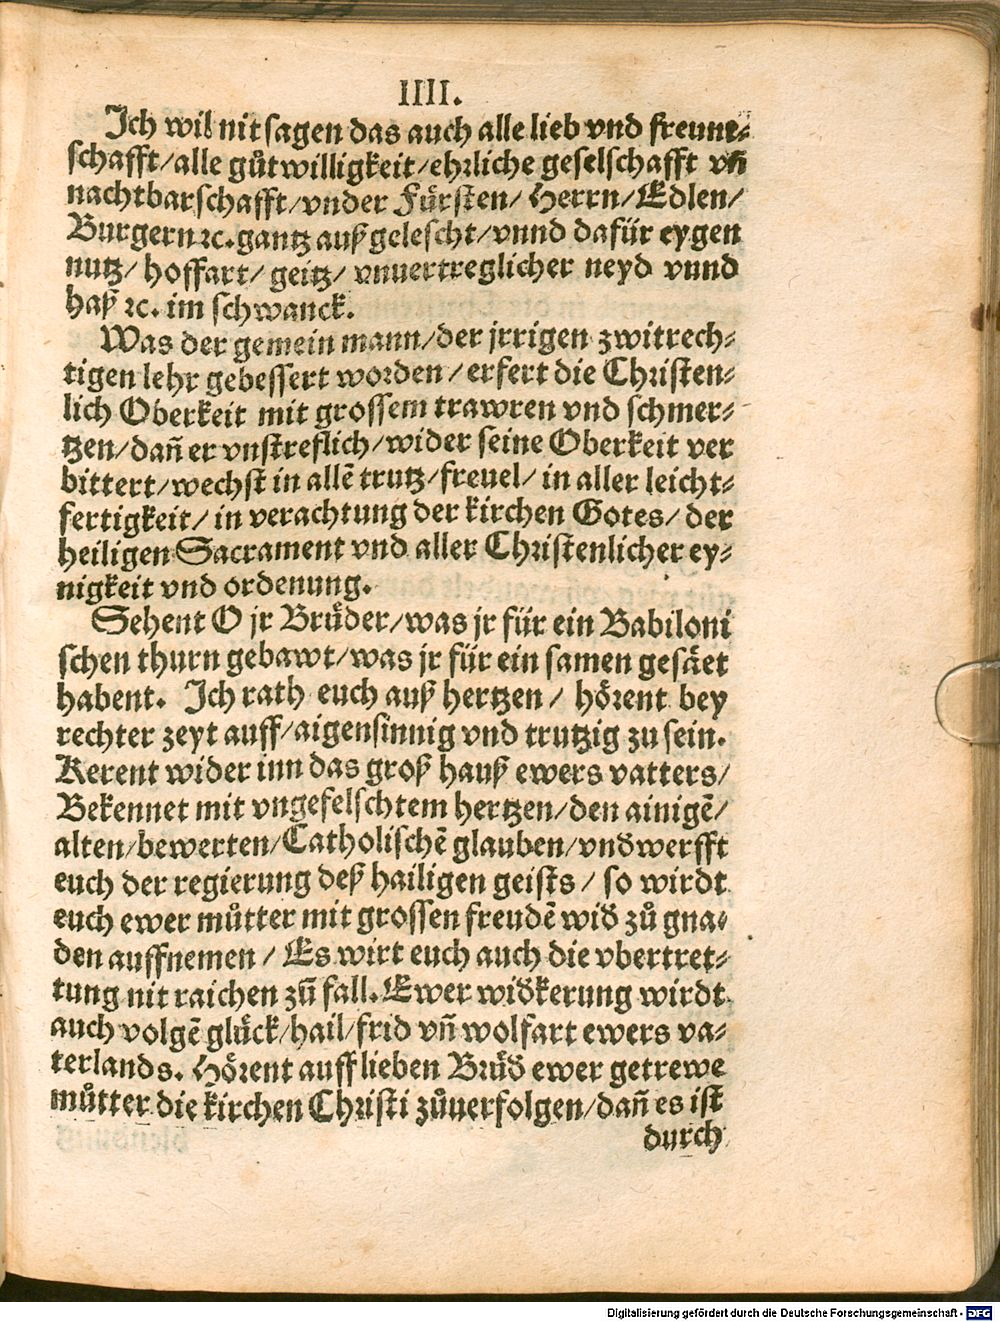 IIII.
Ich wil nit sagen das auch alle lieb vnd freunt⸗
schafft/alle gůtwilligkeit/ehrliche geselschafft vñ
nachtbarschafft/vnder Fürsten/ Herrn/Edlen/
Burgern ꝛc. gantz auß gelescht/vnnd dafür eygen
nutz/ hoffart/ geitz/ vnuertreglicher neyd vnnd
haß ꝛc. im schwanck.
Was der gemein mann/der jrrigen zwitrech⸗
tigen lehr gebessert worden / erfert die Christen⸗
lich Oberkeit mit grossem trawren vnd schmer⸗
tzen/dañ er vnstreflich/wider seine Oberkeit ver
bittert/wechst in allẽ trutz/freuel/ in aller leicht⸗
fertigkeit/ in verachtung der kirchen Gotes/ der
heiligen Sacrament vnd aller Christenlicher ey⸗
nigkeit vnd ordenung.
Sehent O jr Brüder/was jr für ein Babiloni
schen thurn gebawt/was jr für ein samen gesäet
habent. Ich rath euch auß hertzen / hörent bey
rechter zeyt auff/aigensinnig vnd trutzig zu sein.
Kerent wider inn das groß hauß ewers vatters/
Bekennet mit vngefelschtem hertzen/den ainigẽ/
alten/bewerten/Catholischẽ glauben/vnd werfft
euch der regierung deß hailigen geists / so wirdt
euch ewer můtter mit grossen freudẽ wid̃ zů gna⸗
den auffnemen / Es wirt euch auch die vbertret⸗
tung nit raichen zũ fall. Ewer wid̃kerung wirdt
auch volgẽ glück/hail/frid vñ wolfart ewers va⸗
terlands. Hörent auff lieben Brüd̃ ewer getrewe
můtter die kirchen Christi zůuerfolgen/dañ es ist
durch
Digitalisierung gefördert durch die Deutsche Forschungsgemeinschaft - DFG